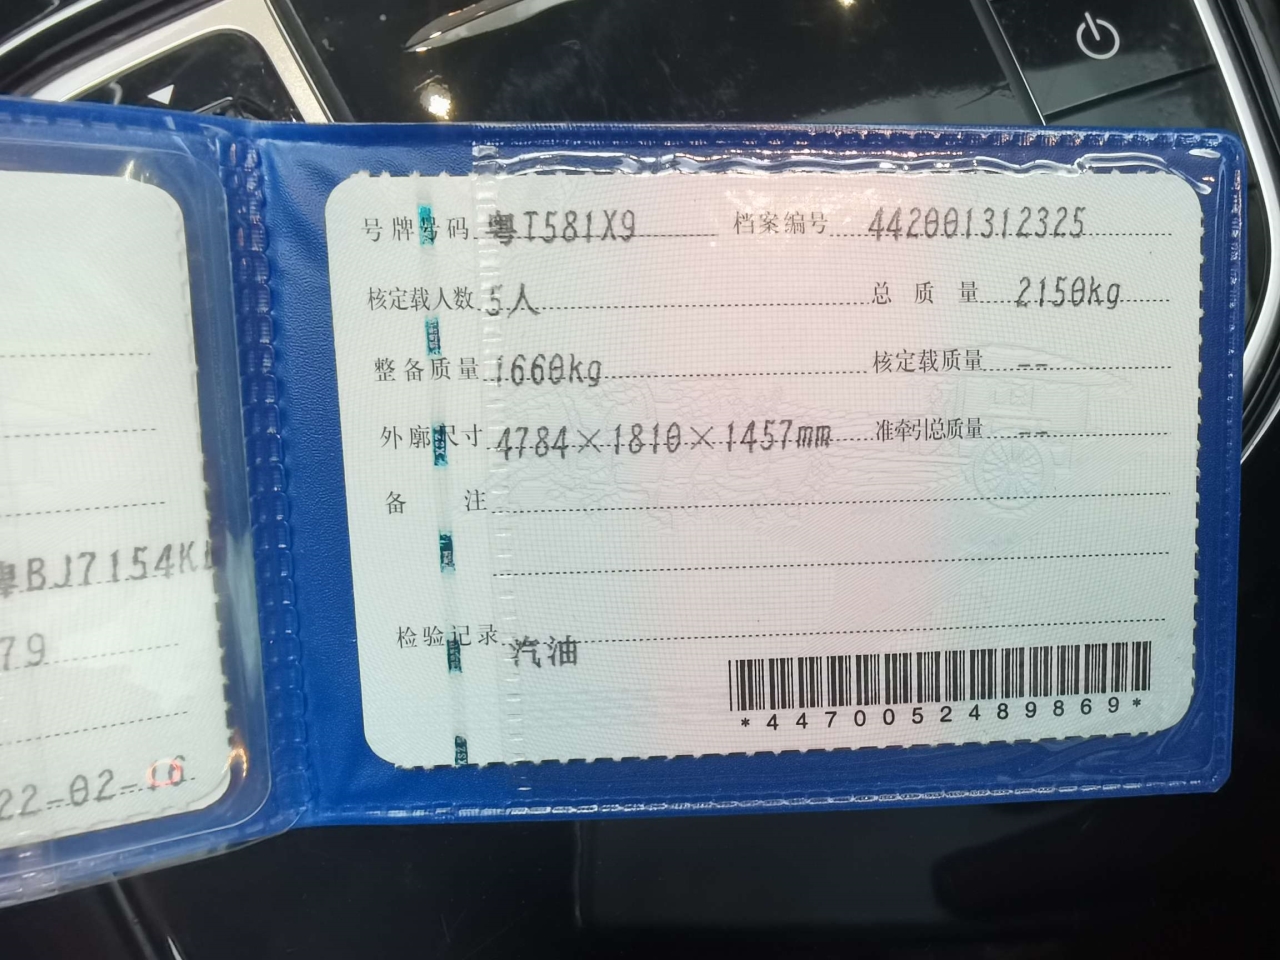 号牌号码 粤T581X9 档案编号 442001312325
核定载人数 5人 总质量 2150kg
整备质量 1660kg 核定载质量 --
外廓尺寸 4784×1810×1457mm 准牵引总质量 --
备注
检验记录 汽油
*447005248986​9*
粤BJ7154K
79
22-02-16